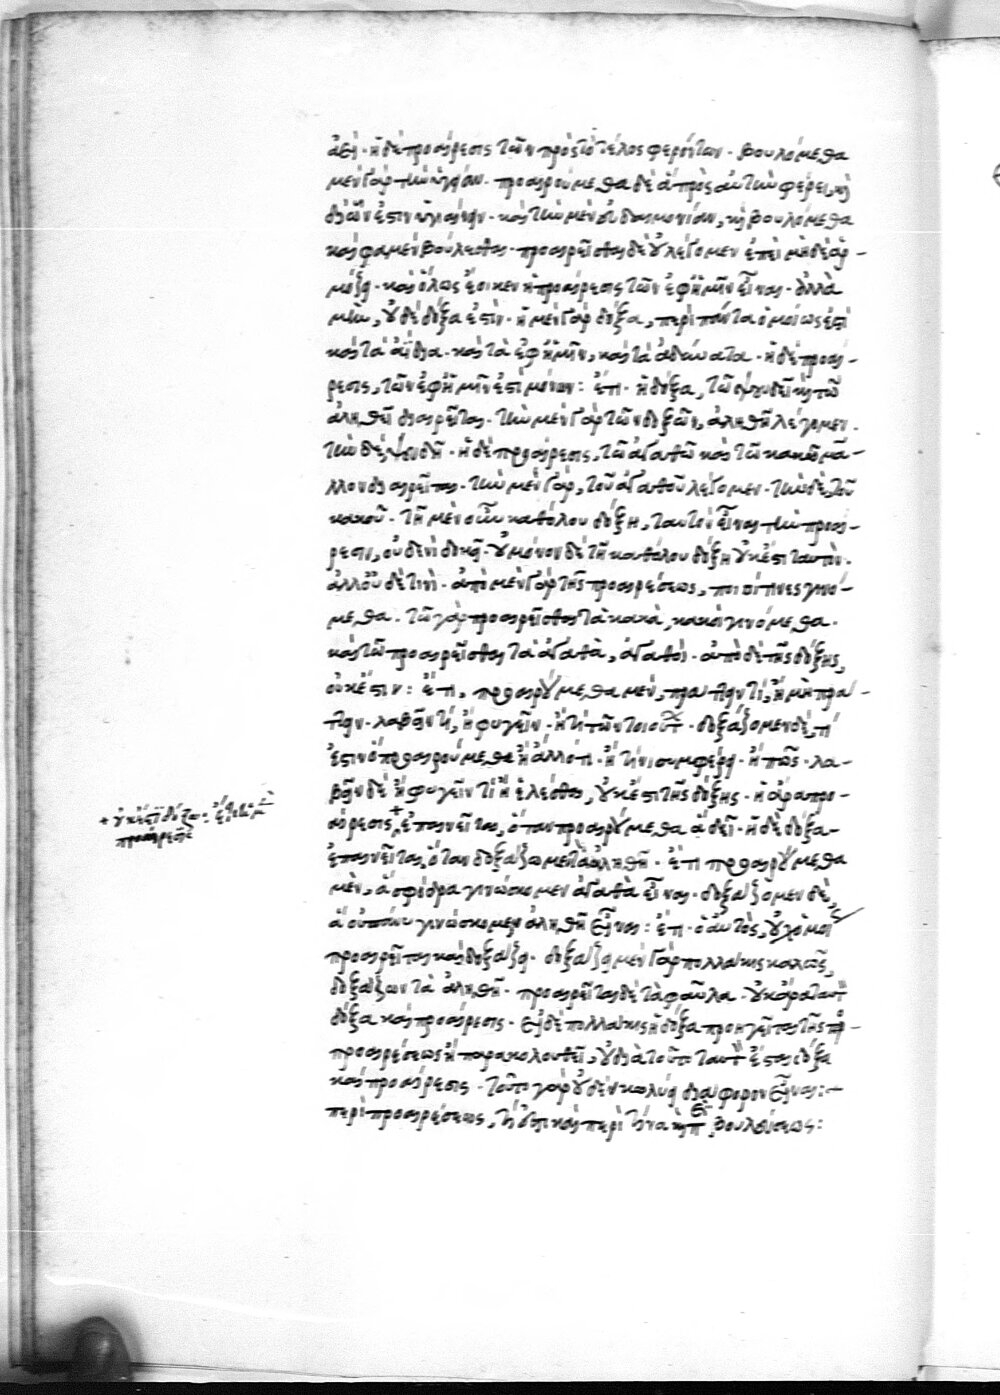 ἀεί· ἡ δὲ προαίρεσις τῶν πρὸς τὸ τέλος φερόντων· βουλόμεθα
μὲν γὰρ τὴν ὑγείαν· προαιρούμεθα δὲ ἃ πρὸς αὐτὴν φέρει, καὶ
δι' ὧν ἐστιν ὑγιαίνειν· καὶ τὴν μὲν εὐδαιμονίαν, καὶ βουλόμεθα
καὶ φαμὲν βούλεσθαι· προαιρεῖσθαι δὲ οὐ λέγομεν ἐπεὶ μηδὲ ἁρ-
μόζει· καὶ ὅλως ἔοικεν ἡ προαίρεσις τῶν ἐφ' ἡμῖν εἶναι· ἀλλὰ
μὴν, οὐδὲ δόξα ἐστίν· ἡ μὲν γὰρ δόξα, περὶ πάντα ὁμοίως ἐστὶ
καὶ τὰ ἀΐδια· καὶ τὰ ἐφ' ἡμῖν, καὶ τὰ ἀδύνατα· ἡ δὲ προαί-
ρεσις, τῶν ἐφ' ἡμῖν ἐστὶ μόνων: ἔτι· ἡ δόξα, τῶ ψευδεῖ καὶ τῶ
ἀληθεῖ διαιρεῖται· τὴν μὲν γὰρ τῶν δοξῶν, ἀληθῆ λέγομεν·
τὴν δὲ, ψευδῆ· ἡ δὲ προαίρεσις, τῶ ἀγαθῶ καὶ τῶ κακῶ μᾶ-
λλον διαιρεῖται· τὴν μὲν γὰρ, τοῦ ἀγαθοῦ λέγομεν· τὴν δὲ, τοῦ
κακοῦ· τῇ μὲν οὖν καθόλου δόξῃ, ταυτὸν εἶναι τὴν προαί-
ρεσιν, οὐδενὶ δοκεῖ· οὐ μόνον δὲ τῇ καθόλου δόξῃ οὐκ ἔστι ταυτὸν·
ἀλλ' οὐδὲ τινὶ· ἀπὸ μὲν γὰρ τῆς προαιρέσεως, ποιοί τινες γινό-
μεθα· τῶ γὰρ προαιρεῖσθαι τὰ κακὰ, κακοὶ γινόμεθα·
καὶ τῶ προαιρεῖσθαι τὰ ἀγαθὰ, ἀγαθοί· ἀπὸ δὲ τῆς δόξης,
οὐκ ἔστιν: ἔτι, προαιρούμεθα μὲν, πράττειν τί, ἢ μὴ πρά-
ττειν· λαβεῖν τί, ἢ φυγεῖν· ἤ τι τῶν τοιούτ· δοξάζομεν δὲ, τί
ἐστιν ὃ προαιρούμεθα ἢ ἄλλο τι· ἢ τίνι συμφέρει· ἢ πῶς· λα-
βεῖν δὲ ἢ φυγεῖν τὶ ἢ ἑλέσθαι, οὐκ ἔστι τῆς δόξης· ἡ ἄρα προ-
αίρεσις + ἐπαινεῖται, ὅταν προαιρούμεθα ἃ δεῖ· ἡ δὲ δόξα
ἐπαινεῖται, ὅταν δοξάζωμεν τὰ ἀληθῆ· ἔτι προαιρούμεθα
μὲν, ἃ σφόδρα γινώσκομεν ἀγαθὰ εἶναι· δοξάζομεν δὲ,
ἃ οὐ πάνυ γινώσκομεν ἀληθῆ εἶναι: ἔτι· ὁ αὐτὸς, οὐχ ὁμοί
προαιρεῖται καὶ δοξάζει· δοξάζει μὲν γὰρ πολλάκις καλῶς,
δοξάζων τὰ ἀληθῆ· προαιρεῖται δὲ τὰ φαῦλα· οὐκ ἄρα ταυτ
δόξα καὶ προαίρεσις· εἰ δὲ πολλάκις ἡ δόξα προηγεῖται τῆς πρ-
προαιρέσεως ἢ παρακολουθεῖ, οὐ διὰ τοῦτο ταυτ ἔσται δόξα
καὶ προαίρεσις· τοῦτο γὰρ οὐδὲν κωλύει διάφορον εἶναι:-
περὶ προαιρέσεως, τί ἐστι καὶ περὶ τίνα καὶ π βουλεύσεως:
+ οὐκ ἔστι δόξα: ἔτι
προαίρεσις